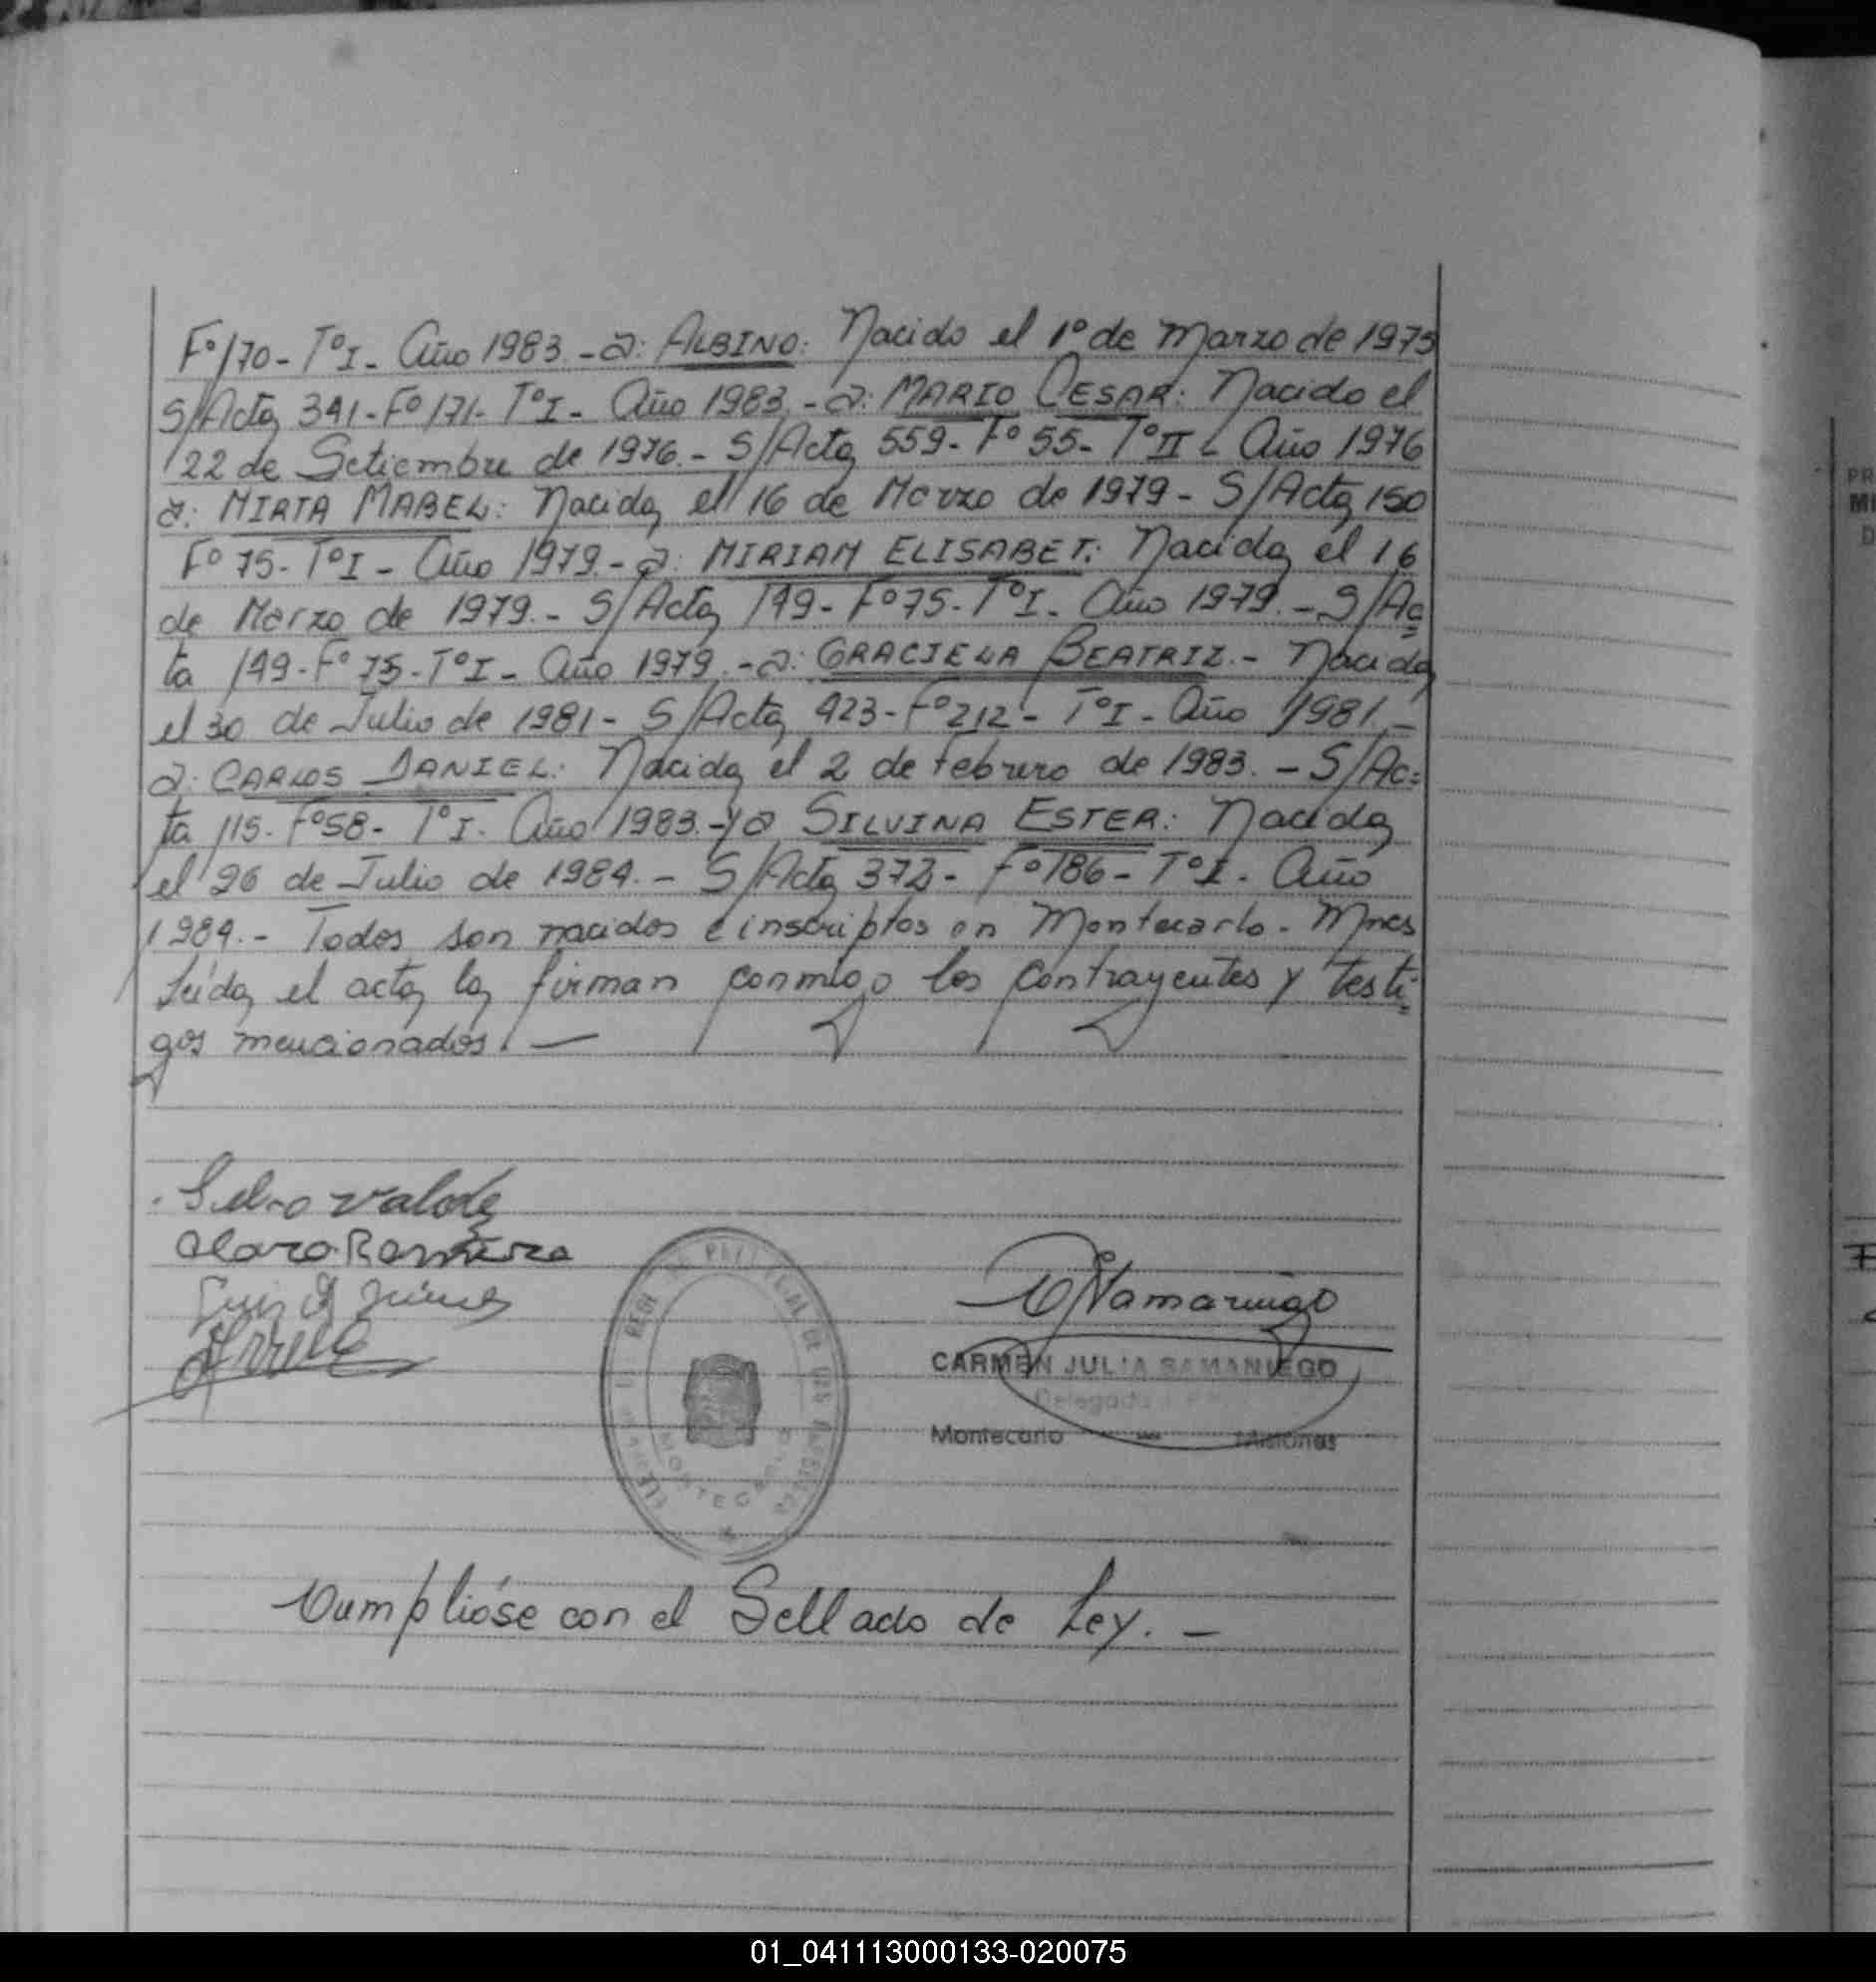 Fº 170- TºI- Año 1983.- a: ALBINO: Nacido el 1º de Marzo de 1975
S/Acta 341- Fº 171- TºI- Año 1983.- a: MARIO CESAR: Nacido el
22 de Setiembre de 1976.- S/Acta 559- Fº 55- TºII- Año 1976
a: MIRTA MABEL: Nacida el 16 de Marzo de 1979- S/Acta 150
Fº 75- TºI- Año 1979.- a: MIRIAM ELISABET: Nacida el 16
de Marzo de 1979.- S/Acta 149- Fº 75- TºI- Año 1979.- S/Ac=
ta 149- Fº 75- TºI- Año 1979.- a: GRACIELA BEATRIZ.- Nacida
el 30 de Julio de 1981- S/Acta 423- Fº 212- TºI- Año 1981.-
a: CARLOS DANIEL: Nacida el 2 de Febrero de 1983.- S/Ac=
ta 115- Fº 58- TºI- Año 1983.- y a SILVINA ESTER: Nacida
el 26 de Julio de 1984.- S/Acta 372- Fº 186- TºI- Año
1984.- Todos son nacidos e inscriptos en Montecarlo- Mnes
Leída el acta la firman conmigo los contrayentes y testi=
gos mencionados.—
Valdez
Claro Ramirez
Luis
CSamaniego
CARMEN JULIA SAMANIEGO
Delegada
Montecarlo — Misiones
MONTECARLO
Cumplióse con el Sellado de Ley.-
PR
MI
D
01_041113000133-020075